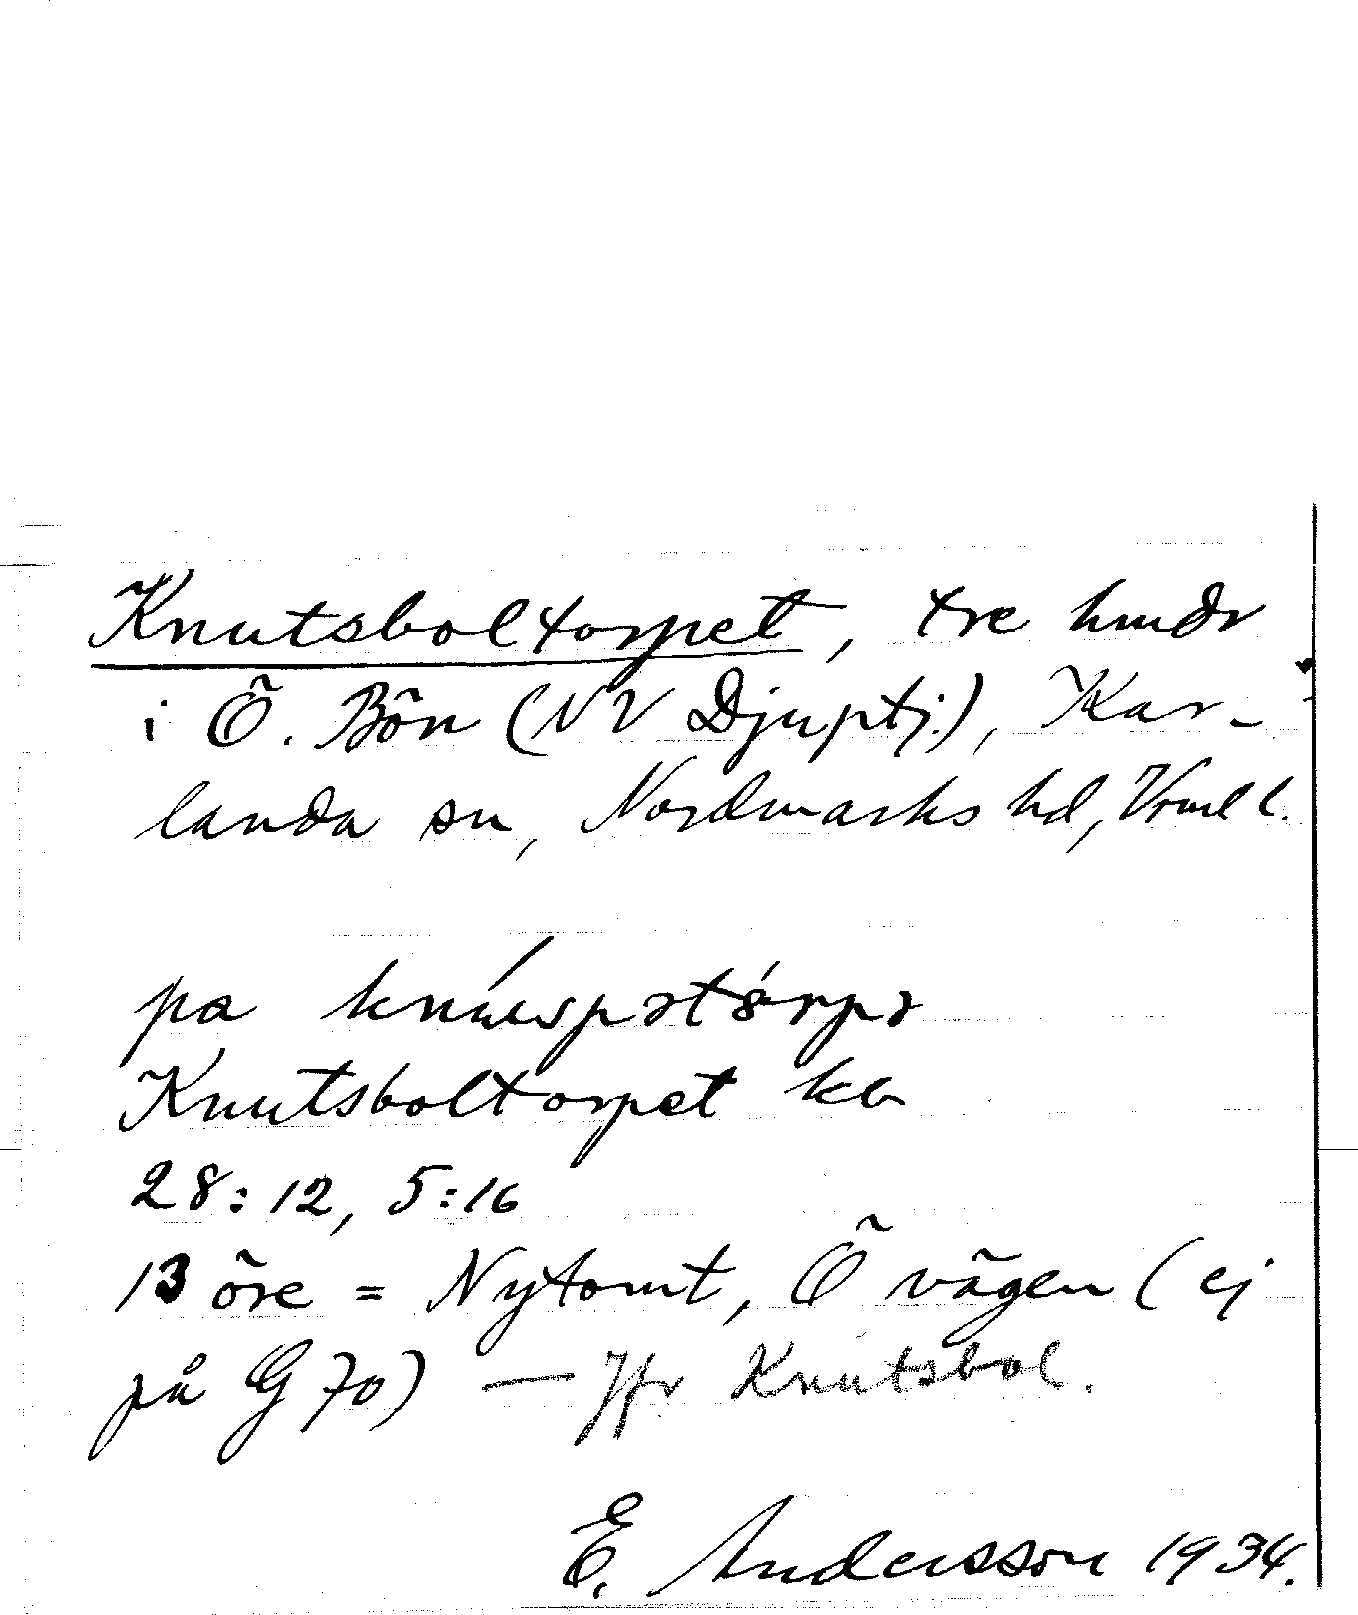 Knutsboltorpet, tre hmdr
i Ö. Bön (NV Djuptj.), Kar-
landa sn, Nordmarks hd, Vrml l.
pa
Knutsboltorpet kb
28:12, 5:16
13 öre = Nytomt, Ö vägen (ej
på G 70) — Jfr Knutsbol.
E. Andersson 1934.